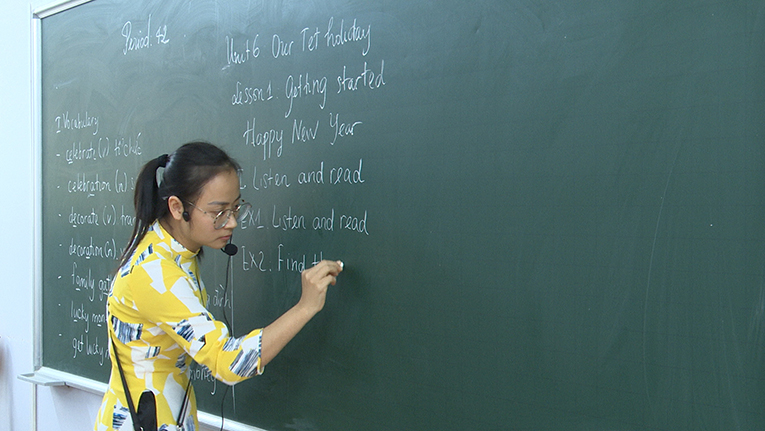 Period: 42
Unit 6 Our Tet holiday
Lesson 1. Getting started
Happy New Year
I. Vocabulary
- celebrate (v) t/chức
- celebration (n)
- decorate (v)
- decoration (n)
- family
- lucky
get lucky
Listen and read
EX1. Listen and read
EX2. Find th